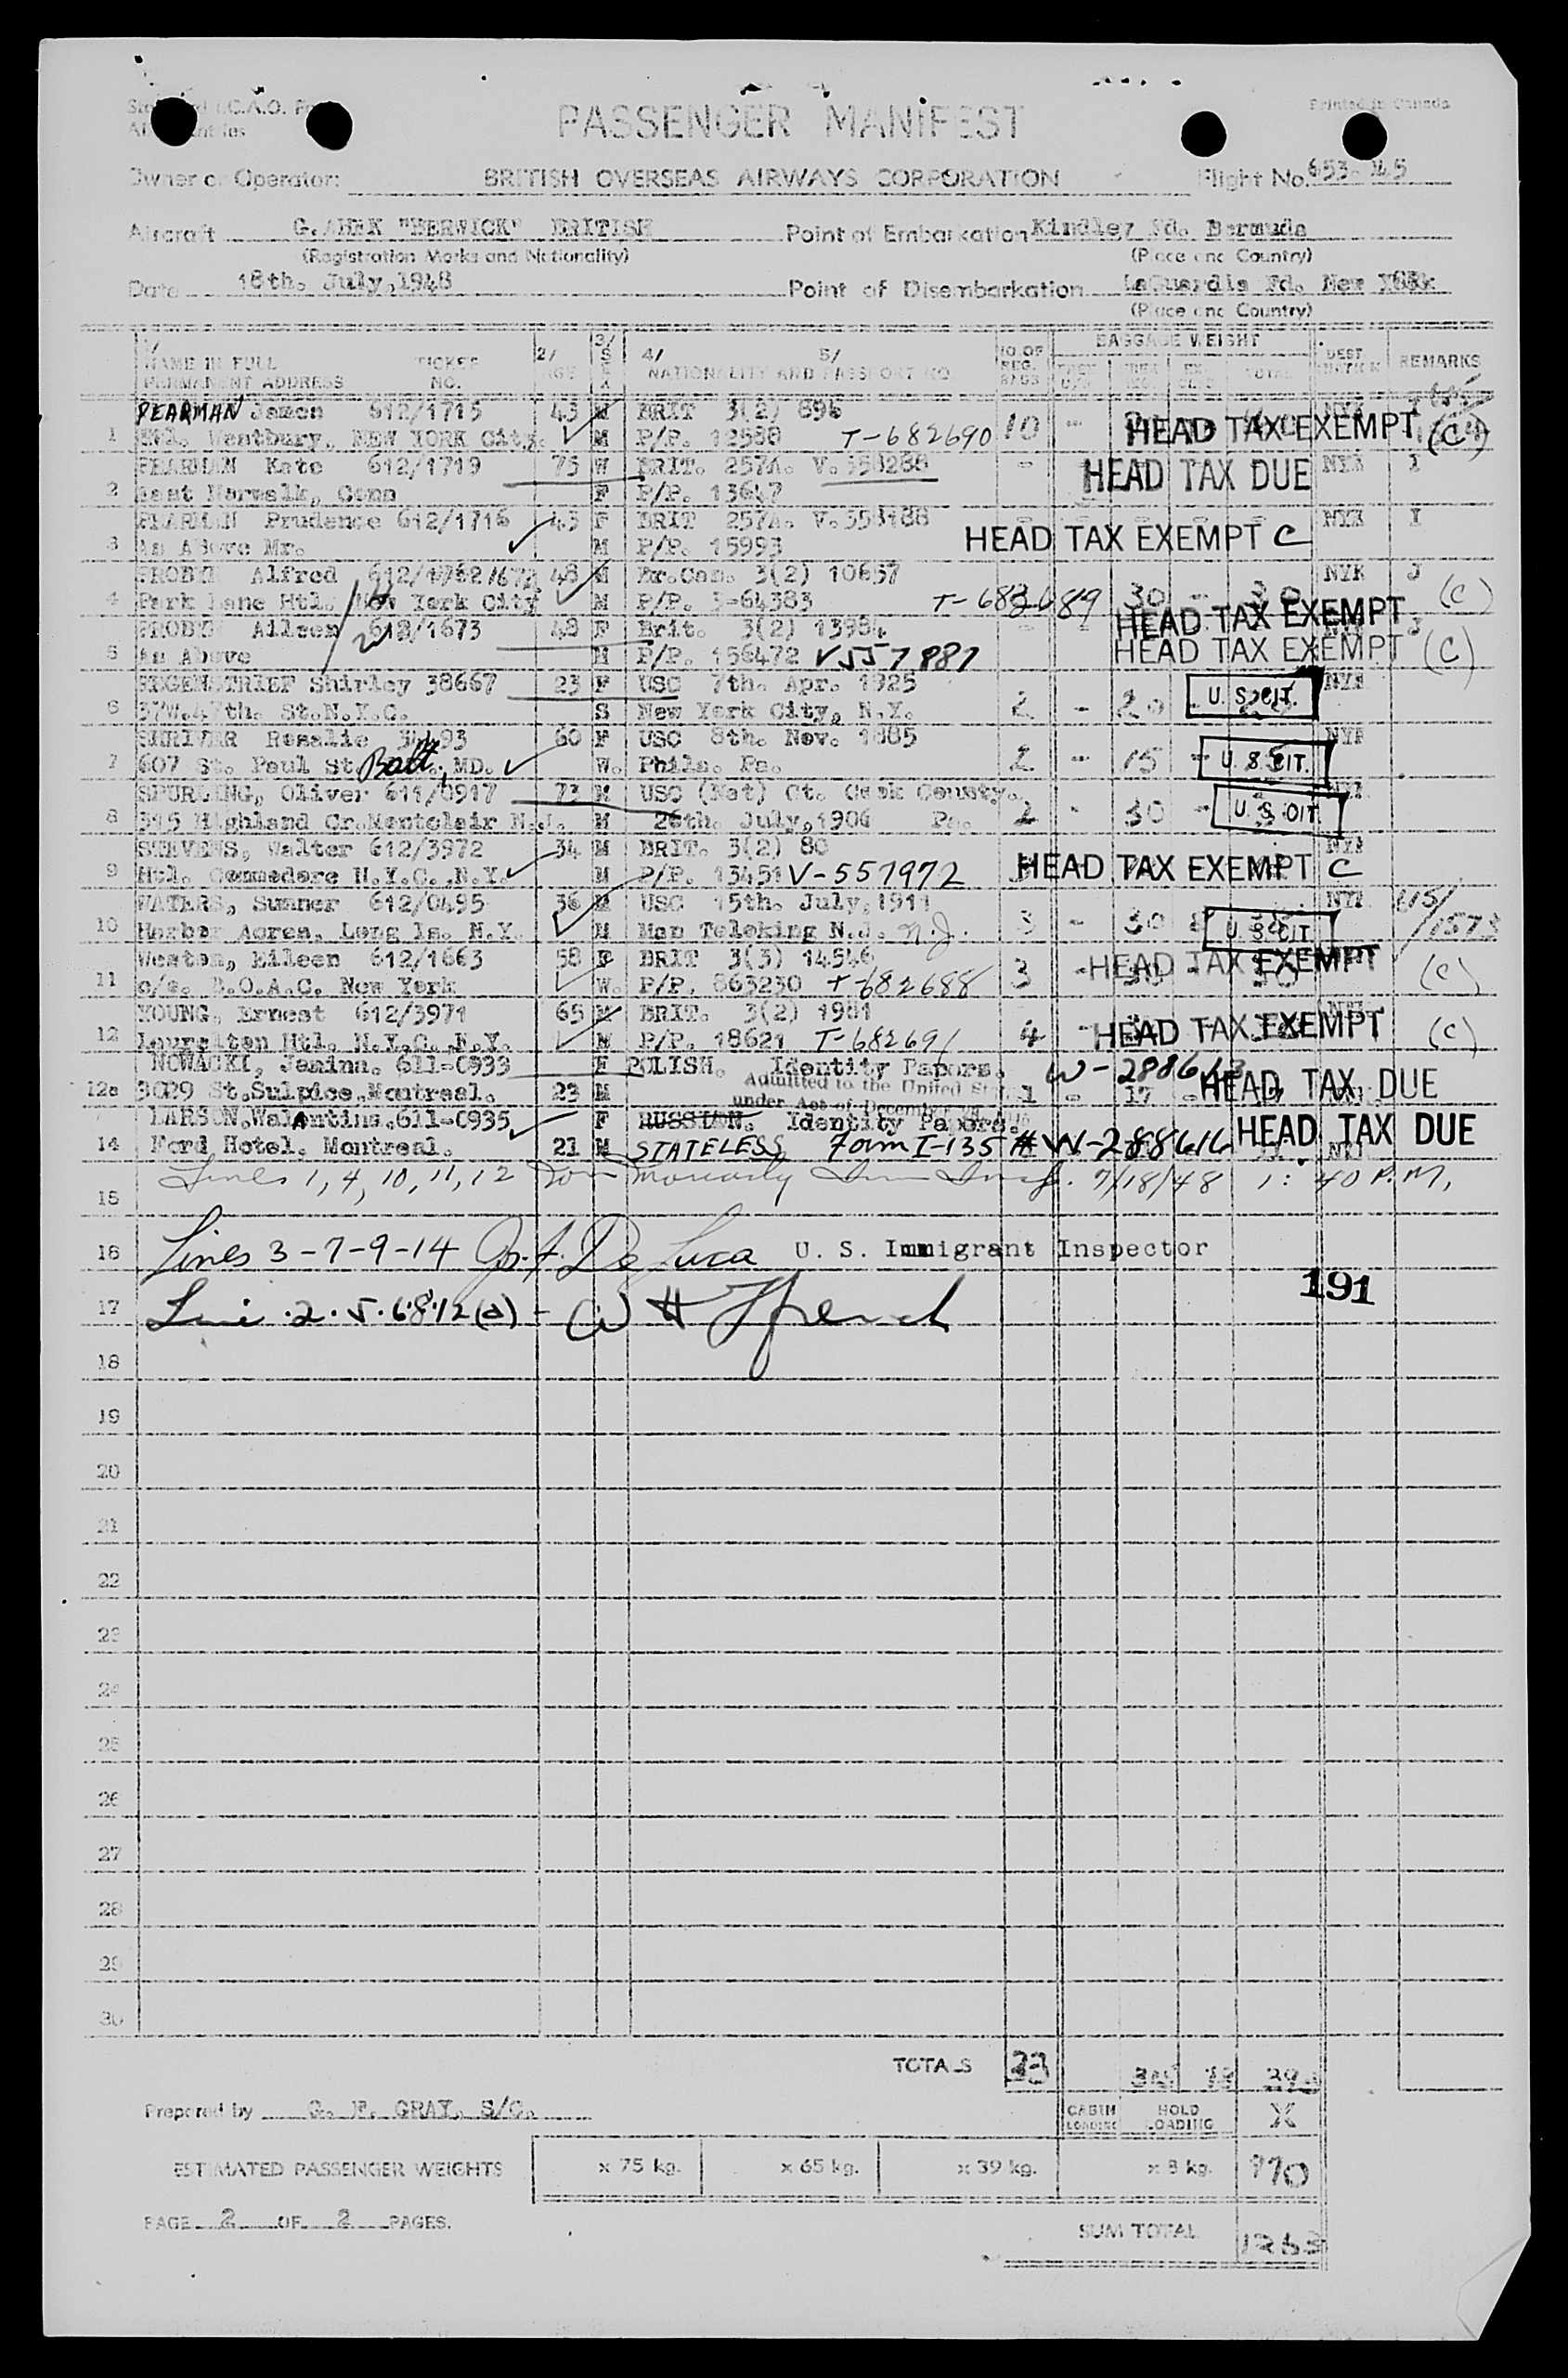 PASSENGER MANIFEST
Printed in Canada
Owner or Operator: BRITISH OVERSEAS AIRWAYS CORPORATION Flight No. 653
Aircraft "BERWICK" BRITISH Point of Embarkation Kindley Fd. Bermuda
(Registration Marks and Nationality) (Place and Country)
Date 18th. July, 1948 Point of Disembarkation LaGuardia Fd. New York
(Place and Country)
1/ NAME IN FULL TICKET 2/ 3/ 4/ 5/ NO. OF BAGGAGE WEIGHT DEST REMARKS
PERMANENT ADDRESS NO. AGE SEX NATIONALITY AND PASSPORT NO REG. BAGS TOTAL
PEARMAN James 612/1715 43 M BRIT 3(2) 896 NYK I
1 Htl. Westbury, NEW YORK City. M P/P. 12580 T-682690 10 - HEAD TAX EXEMPT (C)
PEARMAN Kate 612/1719 75 W BRIT. 257A. V.558288 - HEAD TAX DUE NYK I
2 East Norwalk, Conn F P/P. 13647
PEARMAN Prudence 612/1716 43 F BRIT 257A. V.558188 NYK I
3 As Above Mr. M P/P. 15993 HEAD TAX EXEMPT C
Alfred 48 M Br.Can. 3(2) 10657 NYK J
4 Park Lane Htl. New York City M P/P. 3-64383 T-682689 30 - 30 (C)
HEAD TAX EXEMPT
Aileen 612/1673 48 F Brit. 3(2) 13984 J
5 As Above M P/P. 156472 V557887 HEAD TAX EXEMPT (C)
SEGENSTRIEF Shirley 38667 23 F USC 7th. Apr. 1925 NYK
6 37W.47th. St.N.Y.C. S New York City, N.Y. 2 - 20 U. S. CIT.
Rosalie 60 F USC 8th. Nov. 1885 NYK
7 607 St. Paul St. Balt., MD. W. Phila. Pa. 2 - 15 - U. S. CIT.
SPURLING, Oliver 611/0917 73 M USC (Nat) Ct. Cook County.
8 315 Highland Cr.Montclair N.J. M 26th. July,1904 Pa. 2 - 30 - U. S. CIT.
STEVENS, Walter 612/3972 34 M BRIT. 3(2) 80 NYK
9 Htl. Commodore N.Y.C.,N.Y. M P/P. 13451 V-557972 HEAD TAX EXEMPT C
WATERS, Sumner 612/0495 36 M USC 15th. July,1911 NYK 615/1573
10 Harbor Acres, Long Is. N.Y. M N.J. N.J. 3 - 30 U. S. CIT
Weston, Eileen 612/1663 58 F BRIT 3(3) 14546 HEAD TAX EXEMPT
11 c/o. B.O.A.C. New York W. P/P. 863230 T-682688 3 - 30 - 30 (C)
YOUNG, Ernest 612/3971 65 M BRIT. 3(2) 1981
12 Htl. N.Y.C.,N.Y. M P/P. 18621 T-682691 4 - HEAD TAX EXEMPT (C)
NOWACKI, Jemina. 611-0933 F POLISH. Identity Papers. W-288613
Admitted to the United States
12a St.Sulpice.Montreal. 23 M 1 - 17 - HEAD TAX DUE
under Act of December
LARSON.Walantina.611-0935 F RUSSIAN. Identity Papers.
14 Ford Hotel. Montreal. 21 M STATELESS Form I-135 # W-288614 HEAD TAX DUE
15 Lines 1, 4, 10, 11, 12 7/18/48 1:40 P.M.
16 Lines 3-7-9-14 Jos. A. De Luca U. S. Immigrant Inspector
191
17 Line 2.5.6.8.12(a) - W H French
18
19
20
21
22
23
24
25
26
27
28
29
30
TOTALS 33
Prepared by G. F. GRAY. S/O. CABIN LOADING HOLD LOADING X
ESTIMATED PASSENGER WEIGHTS x 75 kg. x 65 kg. x 39 kg. x 8 kg. 970
PAGE 2 OF 2 PAGES. SUM TOTAL 1263